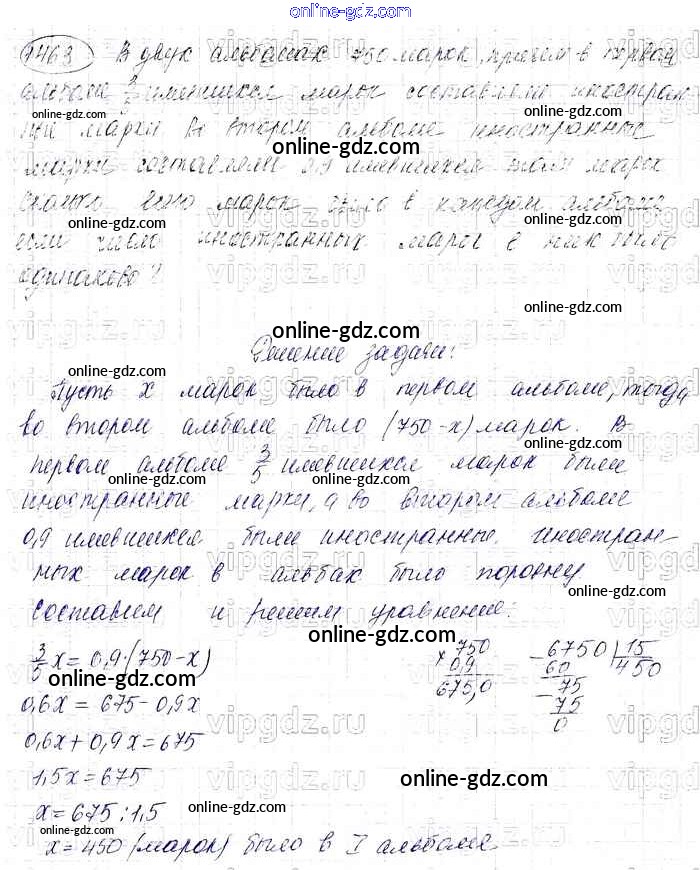 online-gdz.com
1463 В двух альбомах 750 марок, причем в первом
альбоме имевшихся марок составляли иностран-
ные марки. Во втором альбоме иностранные
online-gdz.com
марки составляли 0,9 имевшихся там марок
Сколько всего марок было в каждом альбоме
online-gdz.com
если число иностранных марок в них было
одинаково?
vipgdz.com
online-gdz.com
online-gdz.com
Решение задачи:
online-gdz.com
Пусть x марок было в первом альбоме, тогда
во втором альбоме было (750-x) марок. В
online-gdz.com
первом альбоме 3/5 имевшихся марок были
online-gdz.com
иностранные марки, а во втором альбоме
0,9 имевшихся были иностранные. Иностран-
ных марок в альбах было поровну
online-gdz.com
Составим и решим уравнение:
online-gdz.com
3/5 x = 0,9·(750-x)
online-gdz.com
0,6x = 675-0,9x
0,6x + 0,9x = 675
1,5x = 675
online-gdz.com
x = 675:1,5
online-gdz.com
x = 450 (марок) было в I альбоме
online-gdz.com
× 750
0,9
675,0
- 6750 | 15
60 450
- 75
75
0